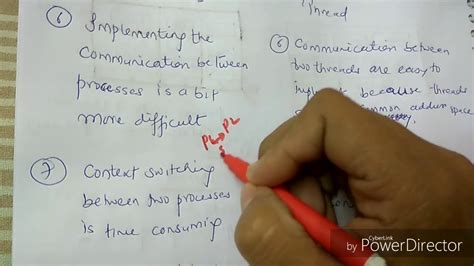 Thread
⑥ Implementing the
Communication between
processes is a bit
more difficult
⑥ Communication between
two threads are easy to
because threads
common address space
P1 → P2
⑦ Context switching
between two processes
is time consuming
CyberLink
by PowerDirector